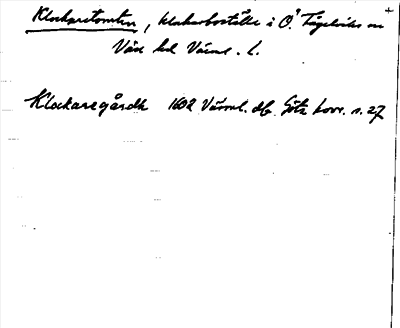 Klockaretomten, klockarboställe i Ö. Fågelviks sn
Väse hd Värml. l.
Klockaregårdh 1602 Värml. db Göta hovr. n. 27